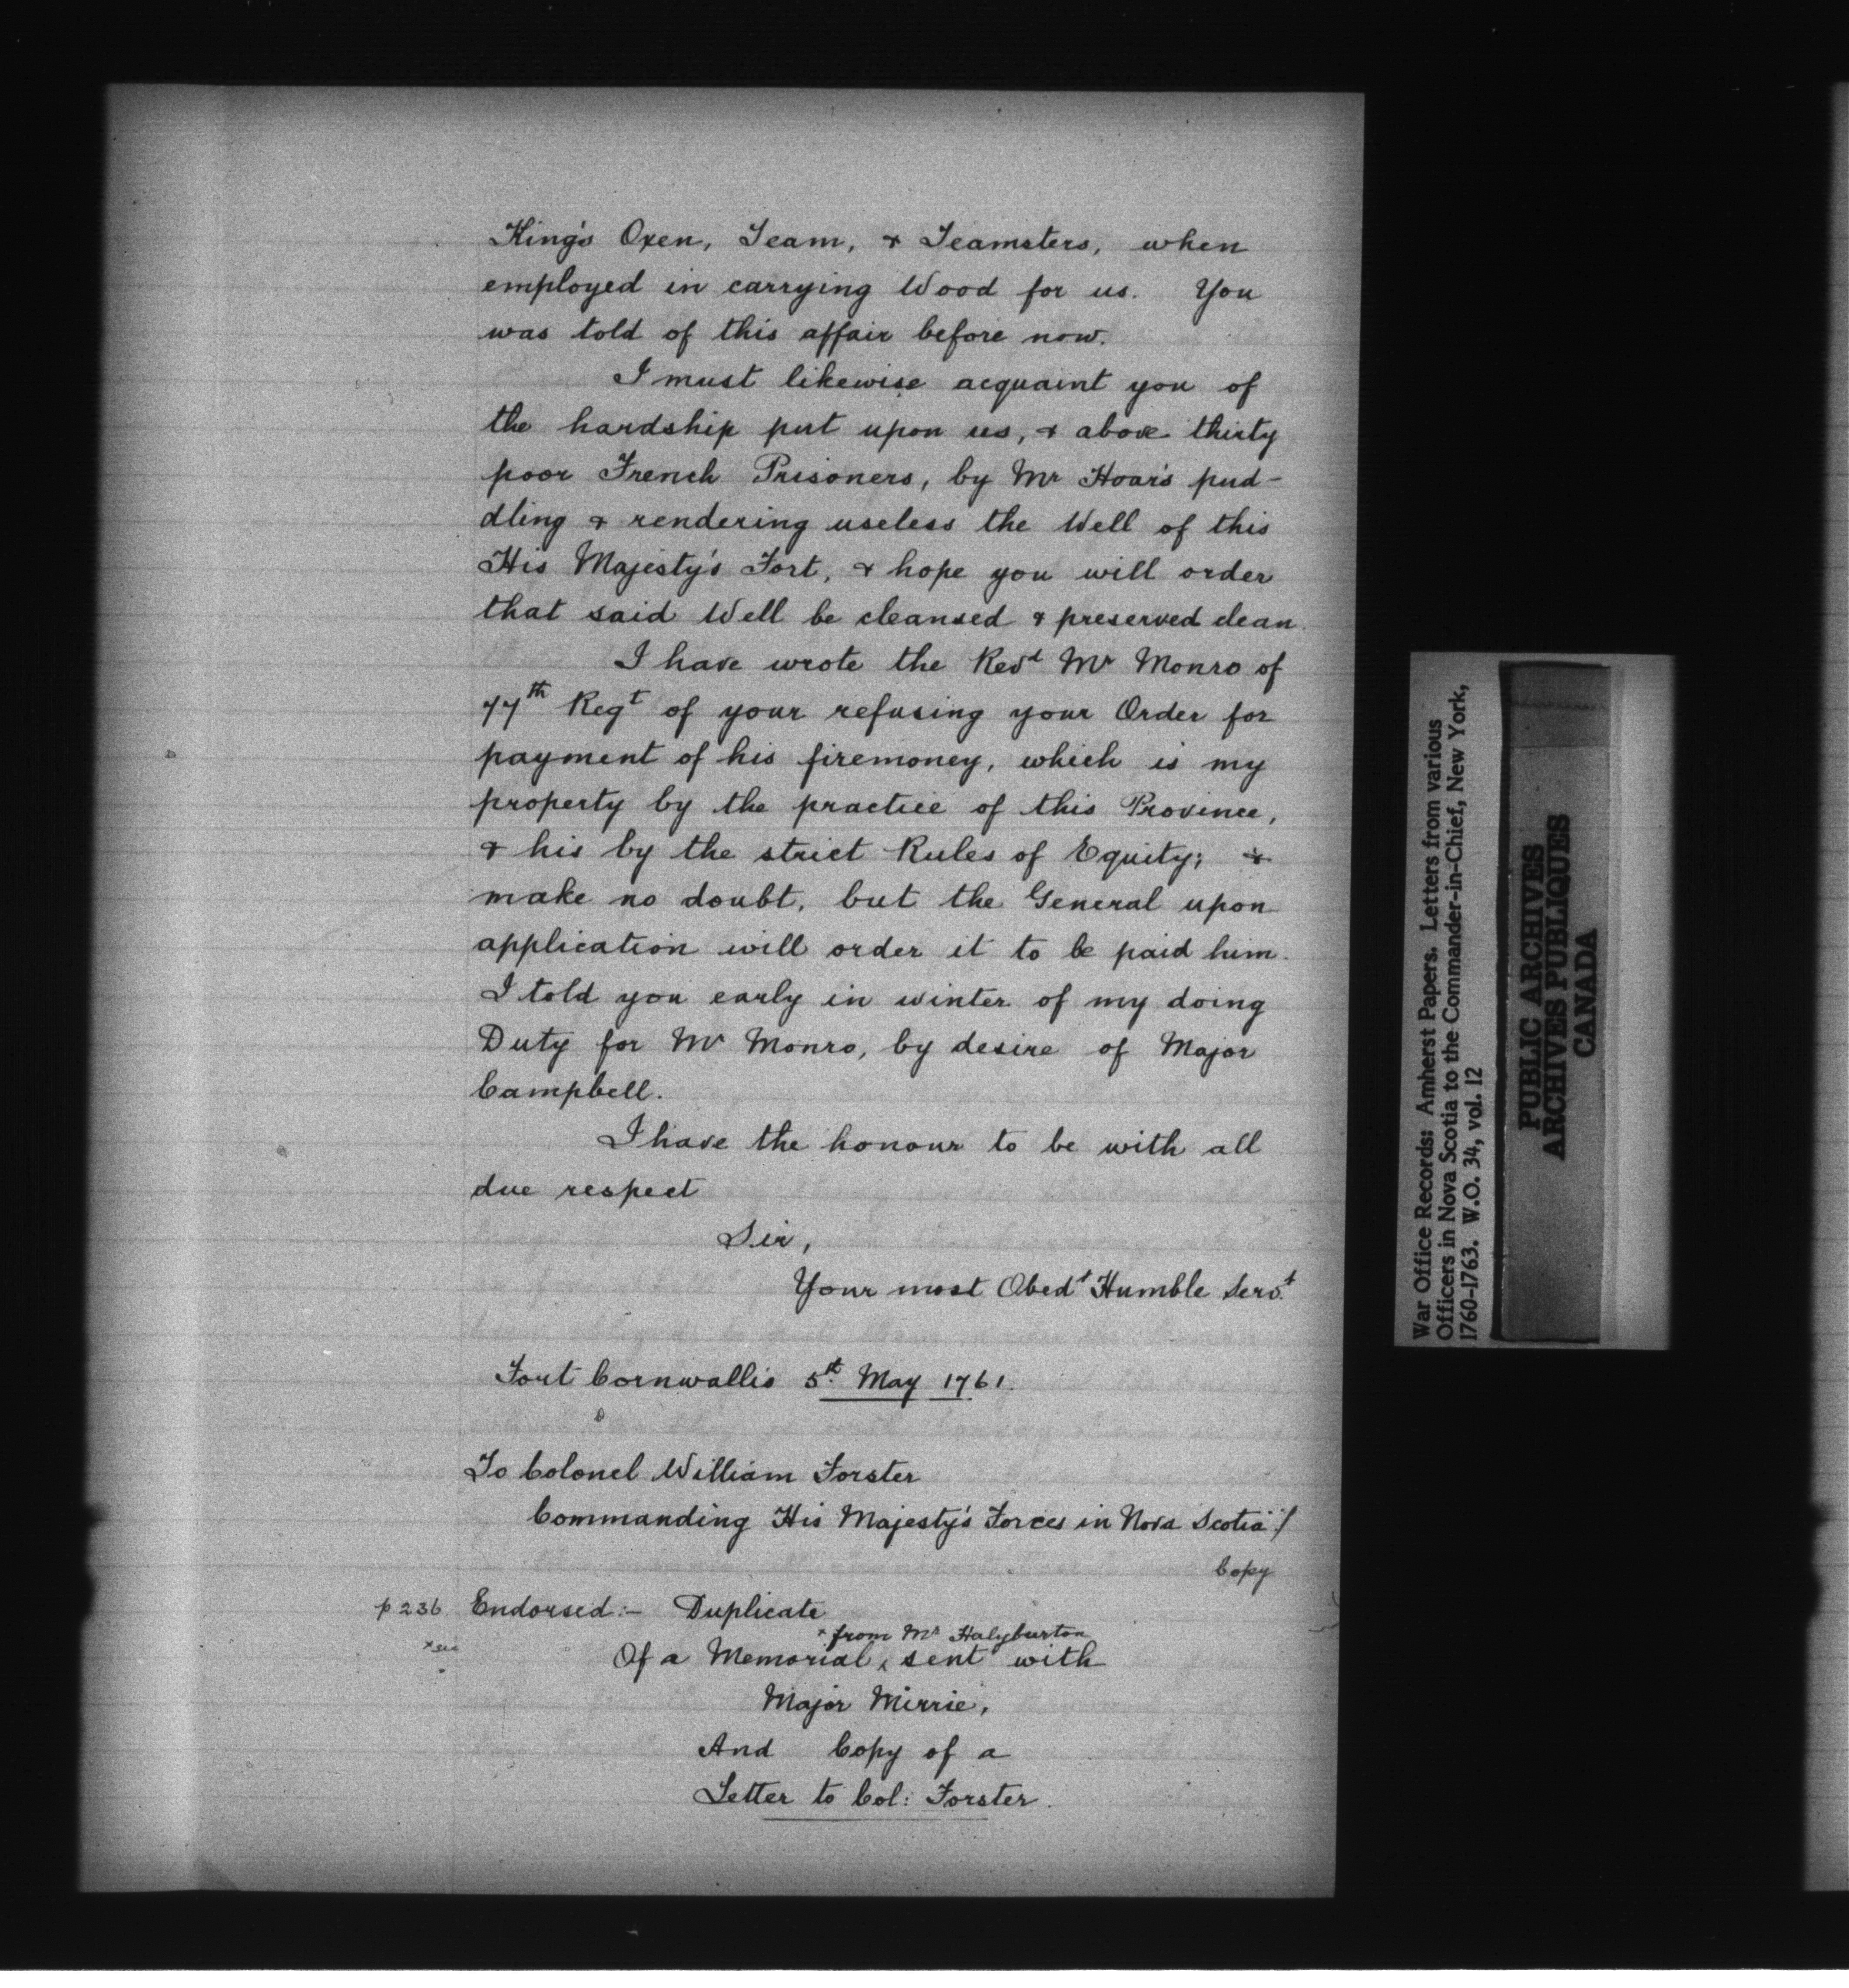 King's Oxen, Team, & Teamsters, when
employed in carrying Wood for us. You
was told of this affair before now.
I must likewise acquaint you of
the hardship put upon us, & above thirty
poor French Prisoners, by Mr Hoar's pud-
dling & rendering useless the Well of this
His Majesty's Fort, & hope you will order
that said Well be cleansed & preserved clean.
I have wrote the Revd Mr Monro of
77th Regt of your refusing your Order for
payment of his firemoney, which is my
property by the practice of this Province,
& his by the strict Rules of Equity; &
make no doubt, but the General upon
application will order it to be paid him.
I told you early in winter of my doing
Duty for Mr Monro, by desire of Major
Campbell.
I have the honour to be with all
due respect
Sir,
Your most Obedt Humble Servt
Fort Cornwallis 5st May 1761.
To Colonel William Forster
Commanding His Majesty's Forces in Nova Scotia /
Copy
p 236 Endorsed :- Duplicate
x from Mr Halyburton
Of a Memorial, sent with
Major Mirrie,
And Copy of a
Letter to Col: Forster.
War Office Records: Amherst Papers. Letters from various
Officers in Nova Scotia to the Commander-in-Chief, New York,
1760-1763. W.O. 34, vol. 12
PUBLIC ARCHIVES
ARCHIVES PUBLIQUES
CANADA